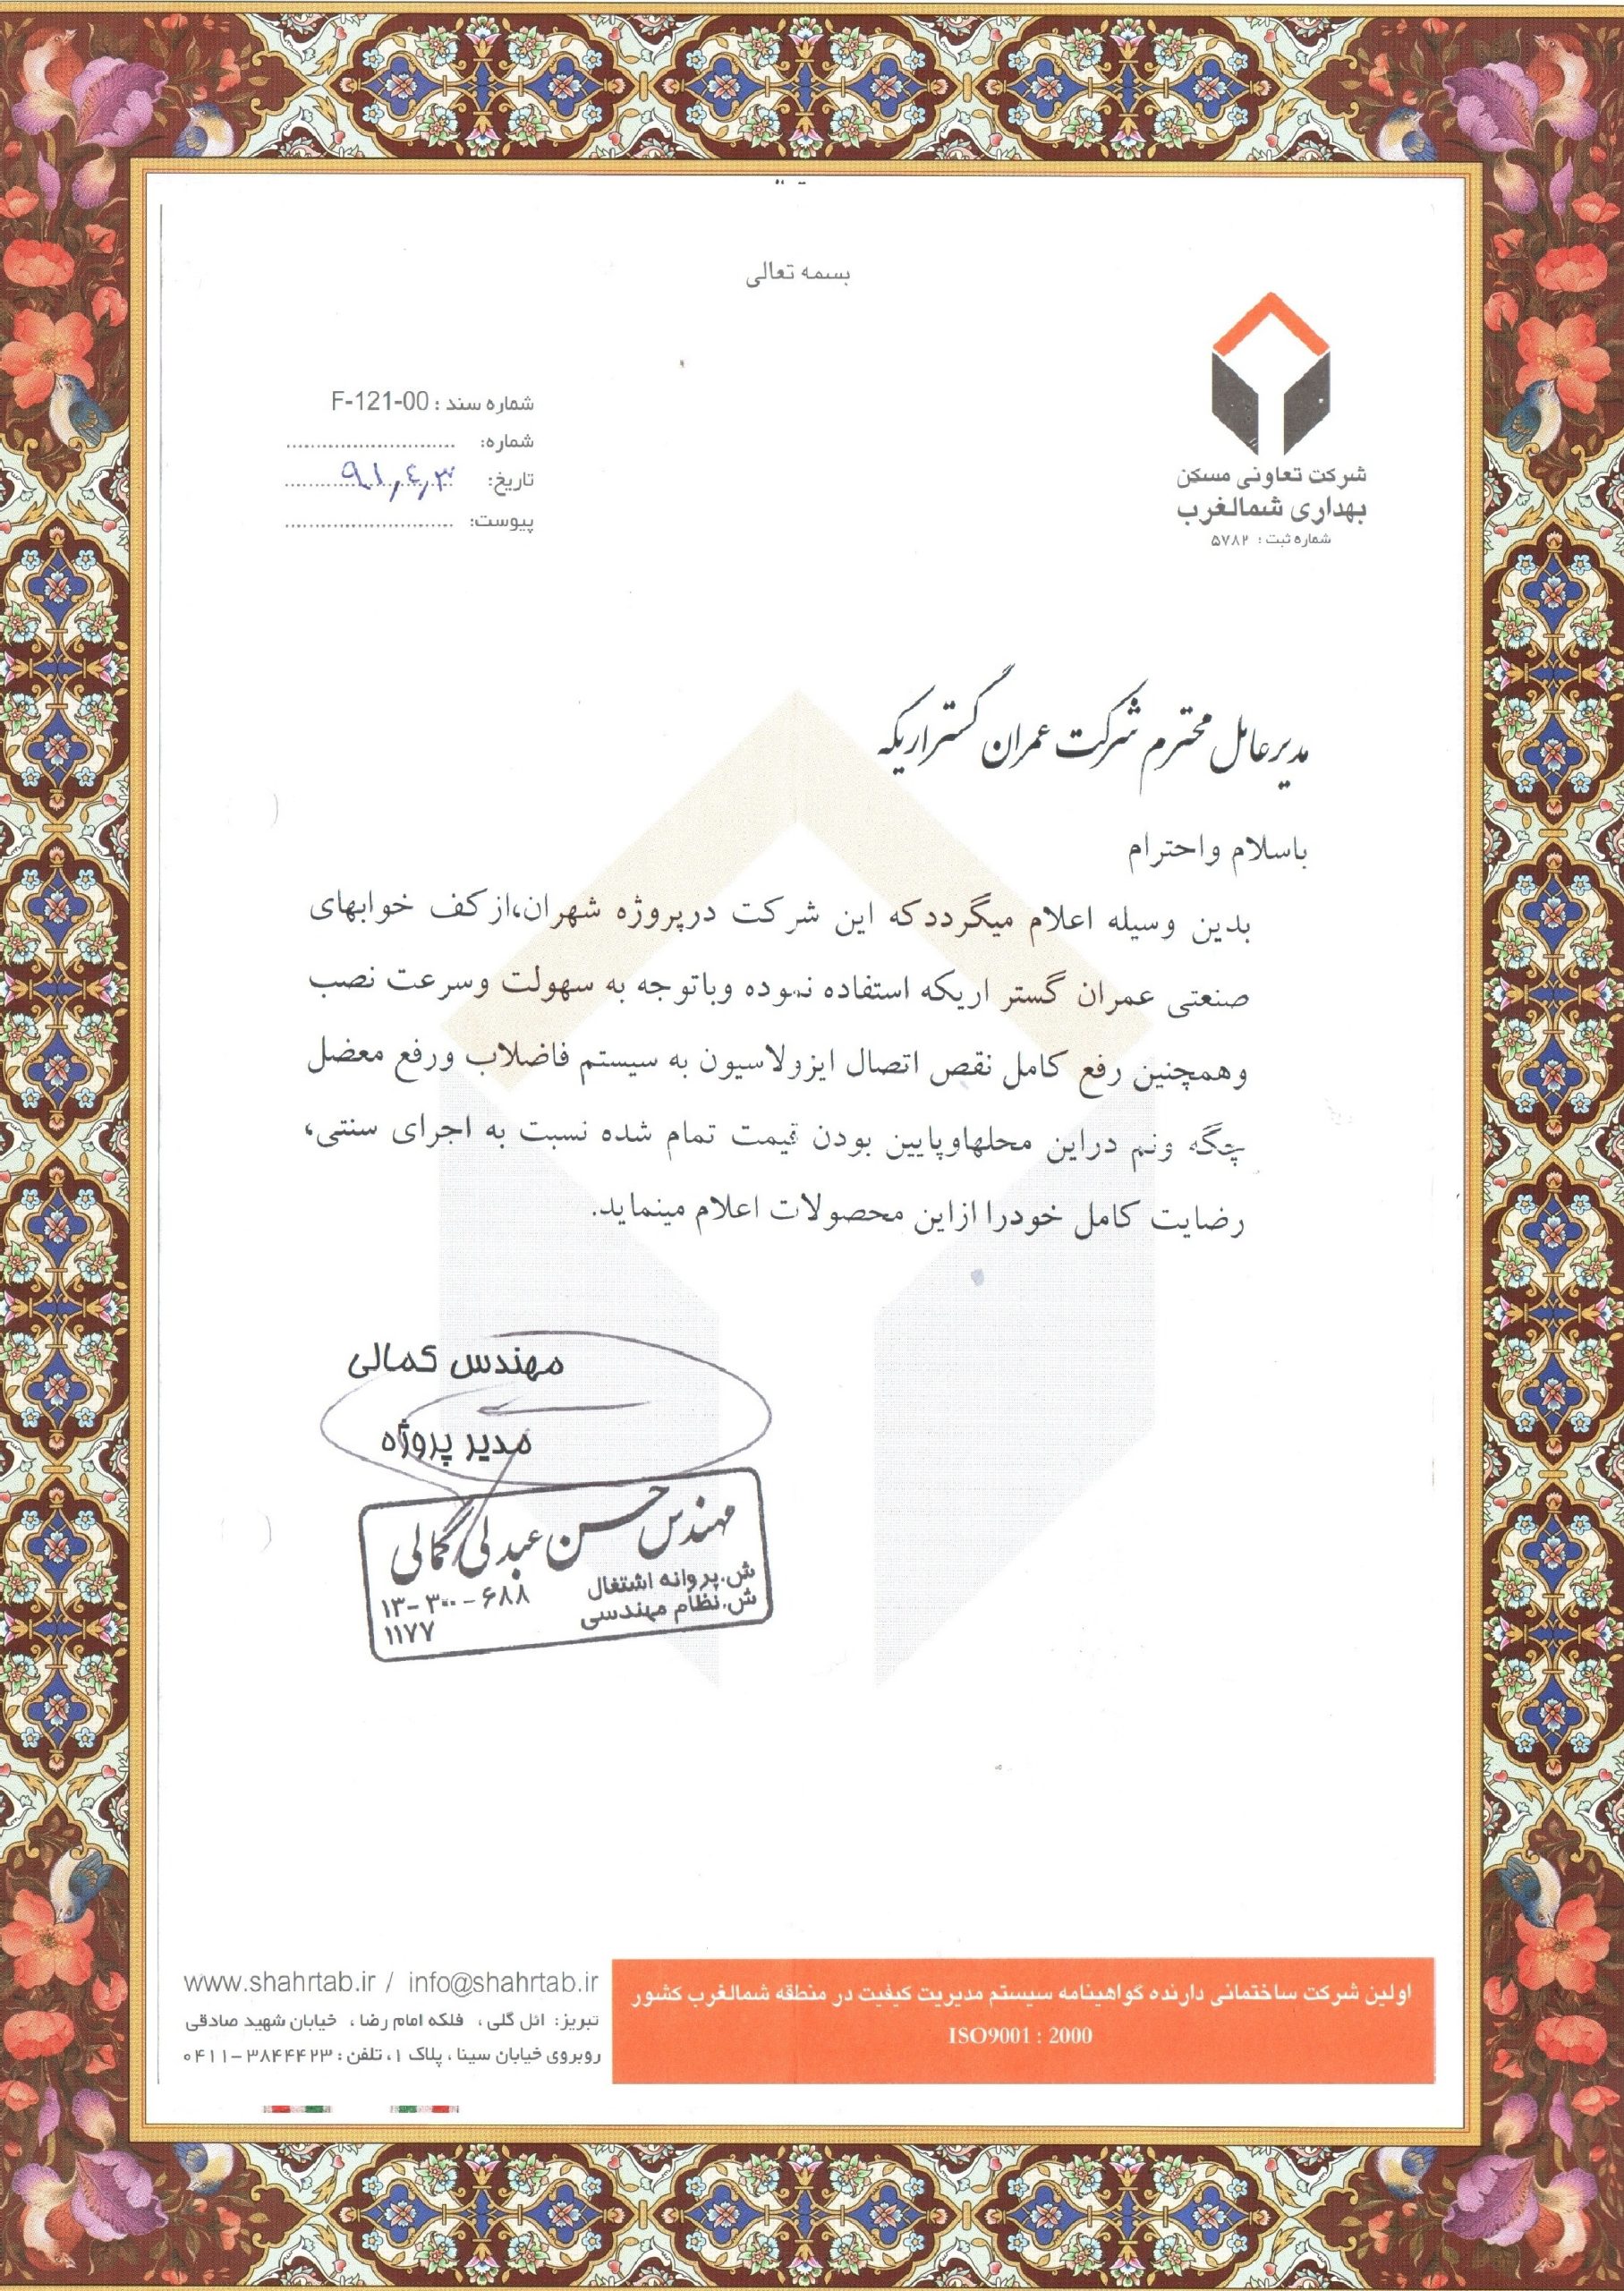 بسمه تعالی
شرکت تعاونی مسکن
بهداری شمالغرب
شماره ثبت : ۵۷۸۲
شماره سند : F-121-00
شماره:
تاریخ: ۹۱٫۴٫۳
پیوست:
مدیرعامل محترم شرکت عمران گستراریکه
باسلام واحترام
بدین وسیله اعلام میگرددکه این شرکت درپروژه شهران،ازکف خوابهای
صنعتی عمران گستر اریکه استفاده نموده وباتوجه به سهولت وسرعت نصب
وهمچنین رفع کامل نقص اتصال ایزولاسیون به سیستم فاضلاب ورفع معضل
چگه ونم دراین محلهاوپایین بودن قیمت تمام شده نسبت به اجرای سنتی،
رضایت کامل خودرا ازاین محصولات اعلام مینماید.
مهندس کمالی
مدیر پروژه
مهندس حسن عبدلی کمالی
ش.پروانه اشتغال ۱۳-۳۰۰-۶۸۸
ش.نظام مهندسی ۱۱۷۷
اولین شرکت ساختمانی دارنده گواهینامه سیستم مدیریت کیفیت در منطقه شمالغرب کشور
ISO9001 : 2000
www.shahrtab.ir / info@shahrtab.ir
تبریز: ائل گلی ، فلکه امام رضا ، خیابان شهید صادقی
روبروی خیابان سینا ، پلاک ۱، تلفن : ۳۸۴۴۴۲۳-۰۴۱۱